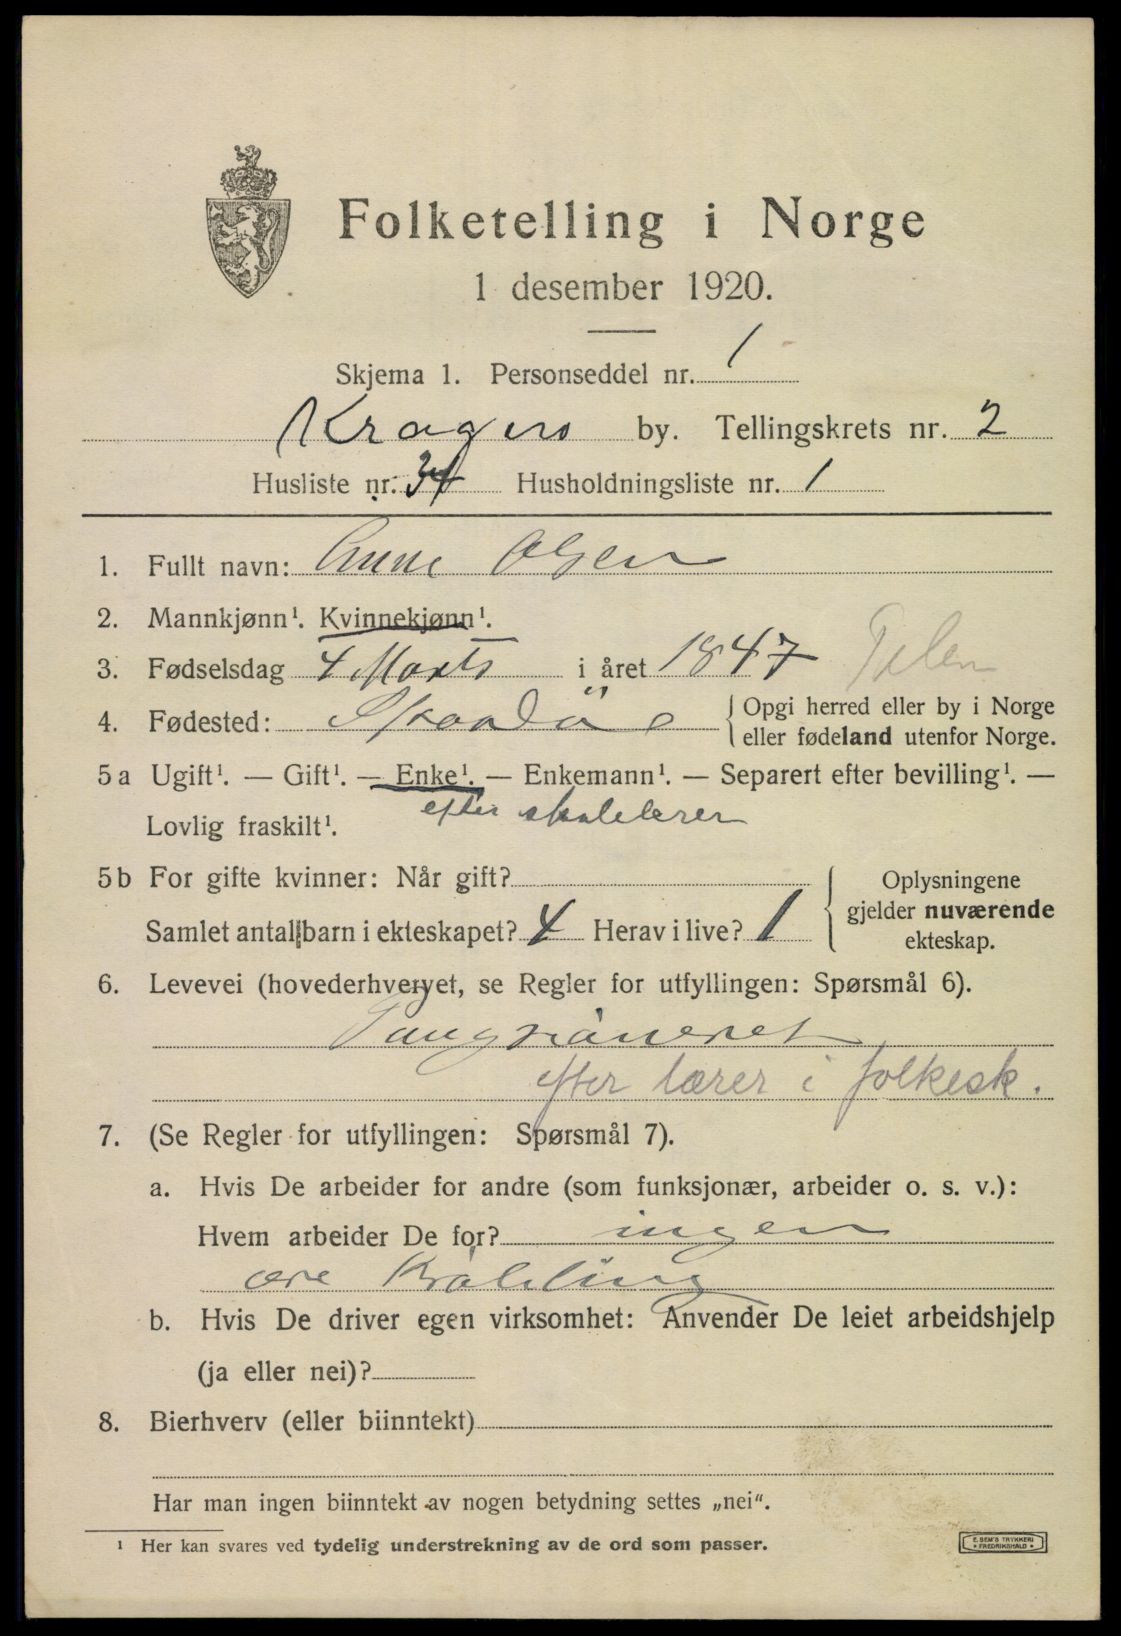 Folketelling i Norge
1 desember 1920.
Skjema 1. Personseddel nr. 1
Kragerø by. Tellingskrets nr. 2
Husliste nr. 34 Husholdningsliste nr. 1
1. Fullt navn: Anne Olsen
2. Mannkjønn¹. Kvinnekjønn¹.
3. Fødselsdag 4 Marts i året 1847 Telem
4. Fødested: Skaadö
Opgi herred eller by i Norge
eller fødeland utenfor Norge.
5 a Ugift¹. — Gift¹. — Enke¹. — Enkemann¹. — Separert efter bevilling¹. —
efter skolelærer
Lovlig fraskilt¹.
5 b For gifte kvinner: Når gift?
Samlet antal barn i ekteskapet? 4 Herav i live? 1
Oplysningene
gjelder nuværende
ekteskap.
6. Levevei (hovederhvervet, se Regler for utfyllingen: Spørsmål 6).
Pangsioneret
efter lærer i folkesk.
7. (Se Regler for utfyllingen: Spørsmål 7).
a. Hvis De arbeider for andre (som funksjonær, arbeider o. s. v.):
Hvem arbeider De for? ingen
b. Hvis De driver egen virksomhet: Anvender De leiet arbeidshjelp
(ja eller nei)?
8. Bierhverv (eller biinntekt)
Har man ingen biinntekt av nogen betydning settes „nei".
¹ Her kan svares ved tydelig understrekning av de ord som passer.
E. SEM'S TRYKKERI
FREDRIKSHALD